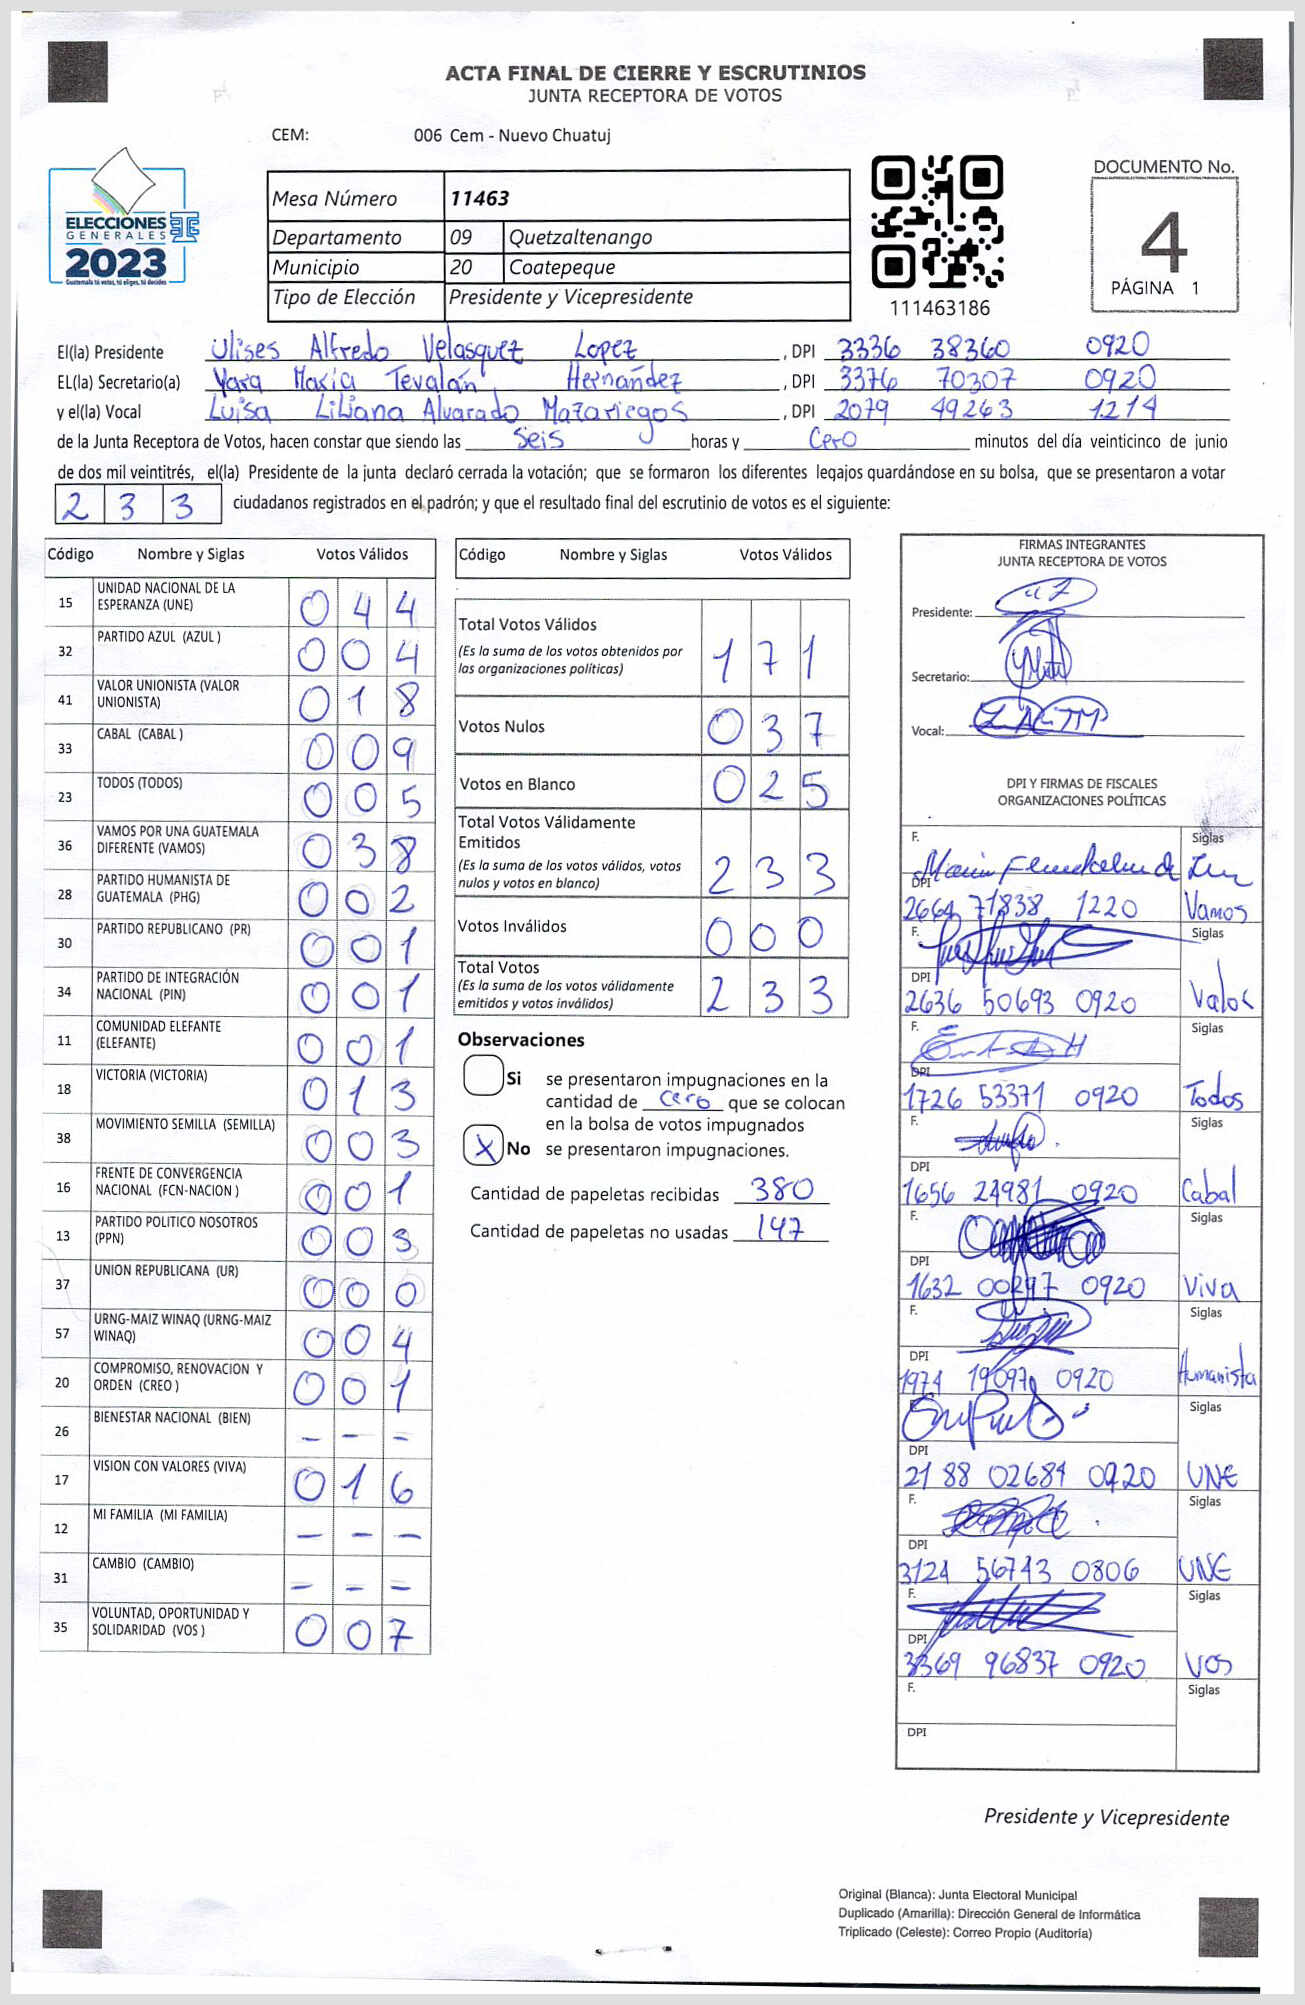 ACTA FINAL DE CIERRE Y ESCRUTINIOS
JUNTA RECEPTORA DE VOTOS
CEM: 006 Cem - Nuevo Chuatuj
ELECCIONES
GENERALES
2023
Guatemala tú votas, tú eliges, tú decides
Mesa Número 11463
Departamento 09 Quetzaltenango
Municipio 20 Coatepeque
Tipo de Elección Presidente y Vicepresidente
111463186
DOCUMENTO No.
4
PÁGINA 1
El(la) Presidente Ulises Alfredo Velasquez Lopez, DPI 3336 38360 0920
EL(la) Secretario(a) Yara María Tevalán Hernández, DPI 3376 70307 0920
y el(la) Vocal Luisa Liliana Alvarado Mazariegos, DPI 2079 49263 1214
de la Junta Receptora de Votos, hacen constar que siendo las Seis horas y Cero minutos del día veinticinco de junio
de dos mil veintitrés, el(la) Presidente de la junta declaró cerrada la votación; que se formaron los diferentes legajos guardándose en su bolsa, que se presentaron a votar
233 ciudadanos registrados en el padrón; y que el resultado final del escrutinio de votos es el siguiente:
Código Nombre y Siglas Votos Válidos
15 UNIDAD NACIONAL DE LA ESPERANZA (UNE) 044
32 PARTIDO AZUL (AZUL ) 004
41 VALOR UNIONISTA (VALOR UNIONISTA) 018
33 CABAL (CABAL ) 009
23 TODOS (TODOS) 005
36 VAMOS POR UNA GUATEMALA DIFERENTE (VAMOS) 038
28 PARTIDO HUMANISTA DE GUATEMALA (PHG) 002
30 PARTIDO REPUBLICANO (PR) 001
34 PARTIDO DE INTEGRACIÓN NACIONAL (PIN) 001
11 COMUNIDAD ELEFANTE (ELEFANTE) 001
18 VICTORIA (VICTORIA) 013
38 MOVIMIENTO SEMILLA (SEMILLA) 003
16 FRENTE DE CONVERGENCIA NACIONAL (FCN-NACION ) 001
13 PARTIDO POLITICO NOSOTROS (PPN) 003
37 UNION REPUBLICANA (UR) 000
57 URNG-MAIZ WINAQ (URNG-MAIZ WINAQ) 004
20 COMPROMISO, RENOVACION Y ORDEN (CREO ) 001
26 BIENESTAR NACIONAL (BIEN) - - -
17 VISION CON VALORES (VIVA) 016
12 MI FAMILIA (MI FAMILIA) - - -
31 CAMBIO (CAMBIO) - - -
35 VOLUNTAD, OPORTUNIDAD Y SOLIDARIDAD (VOS ) 007
Código Nombre y Siglas Votos Válidos
Total Votos Válidos 171
(Es la suma de los votos obtenidos por
las organizaciones políticas)
Votos Nulos 037
Votos en Blanco 025
Total Votos Válidamente
Emitidos 233
(Es la suma de los votos válidos, votos
nulos y votos en blanco)
Votos Inválidos 000
Total Votos 233
(Es la suma de los votos válidamente
emitidos y votos inválidos)
Observaciones
Si se presentaron impugnaciones en la
cantidad de cero que se colocan
en la bolsa de votos impugnados
X No se presentaron impugnaciones.
Cantidad de papeletas recibidas 380
Cantidad de papeletas no usadas 147
FIRMAS INTEGRANTES
JUNTA RECEPTORA DE VOTOS
Presidente:
Secretario:
Vocal:
DPI Y FIRMAS DE FISCALES
ORGANIZACIONES POLÍTICAS
F. Siglas
DPI 2664 71838 1220 Vamos
F. Siglas
DPI 2636 50693 0920 Valor
F. Siglas
DPI 1726 53371 0920 Todos
F. Siglas
DPI 1656 24981 0920 Cabal
F. Siglas
DPI 1632 00297 0920 Viva
F. Siglas
DPI 1974 19097 0920 Humanista
F. Siglas
DPI 2188 02684 0920 UNE
F. Siglas
DPI 3124 56743 0806 UNE
F. Siglas
DPI 3369 96837 0920 VOS
F. Siglas
DPI
Presidente y Vicepresidente
Original (Blanca): Junta Electoral Municipal
Duplicado (Amarilla): Dirección General de Informática
Triplicado (Celeste): Correo Propio (Auditoría)